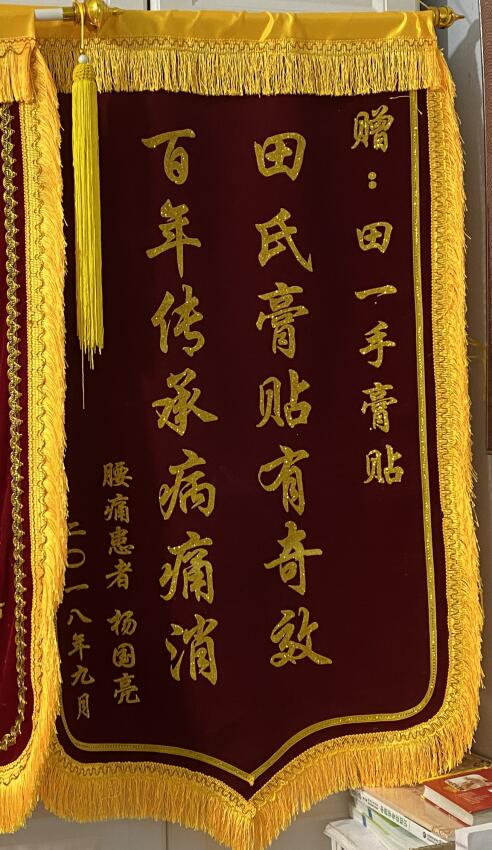 赠：田一手膏贴
田氏膏贴有奇效
百年传承病痛消
腰痛患者 杨国亮
二〇一八年九月